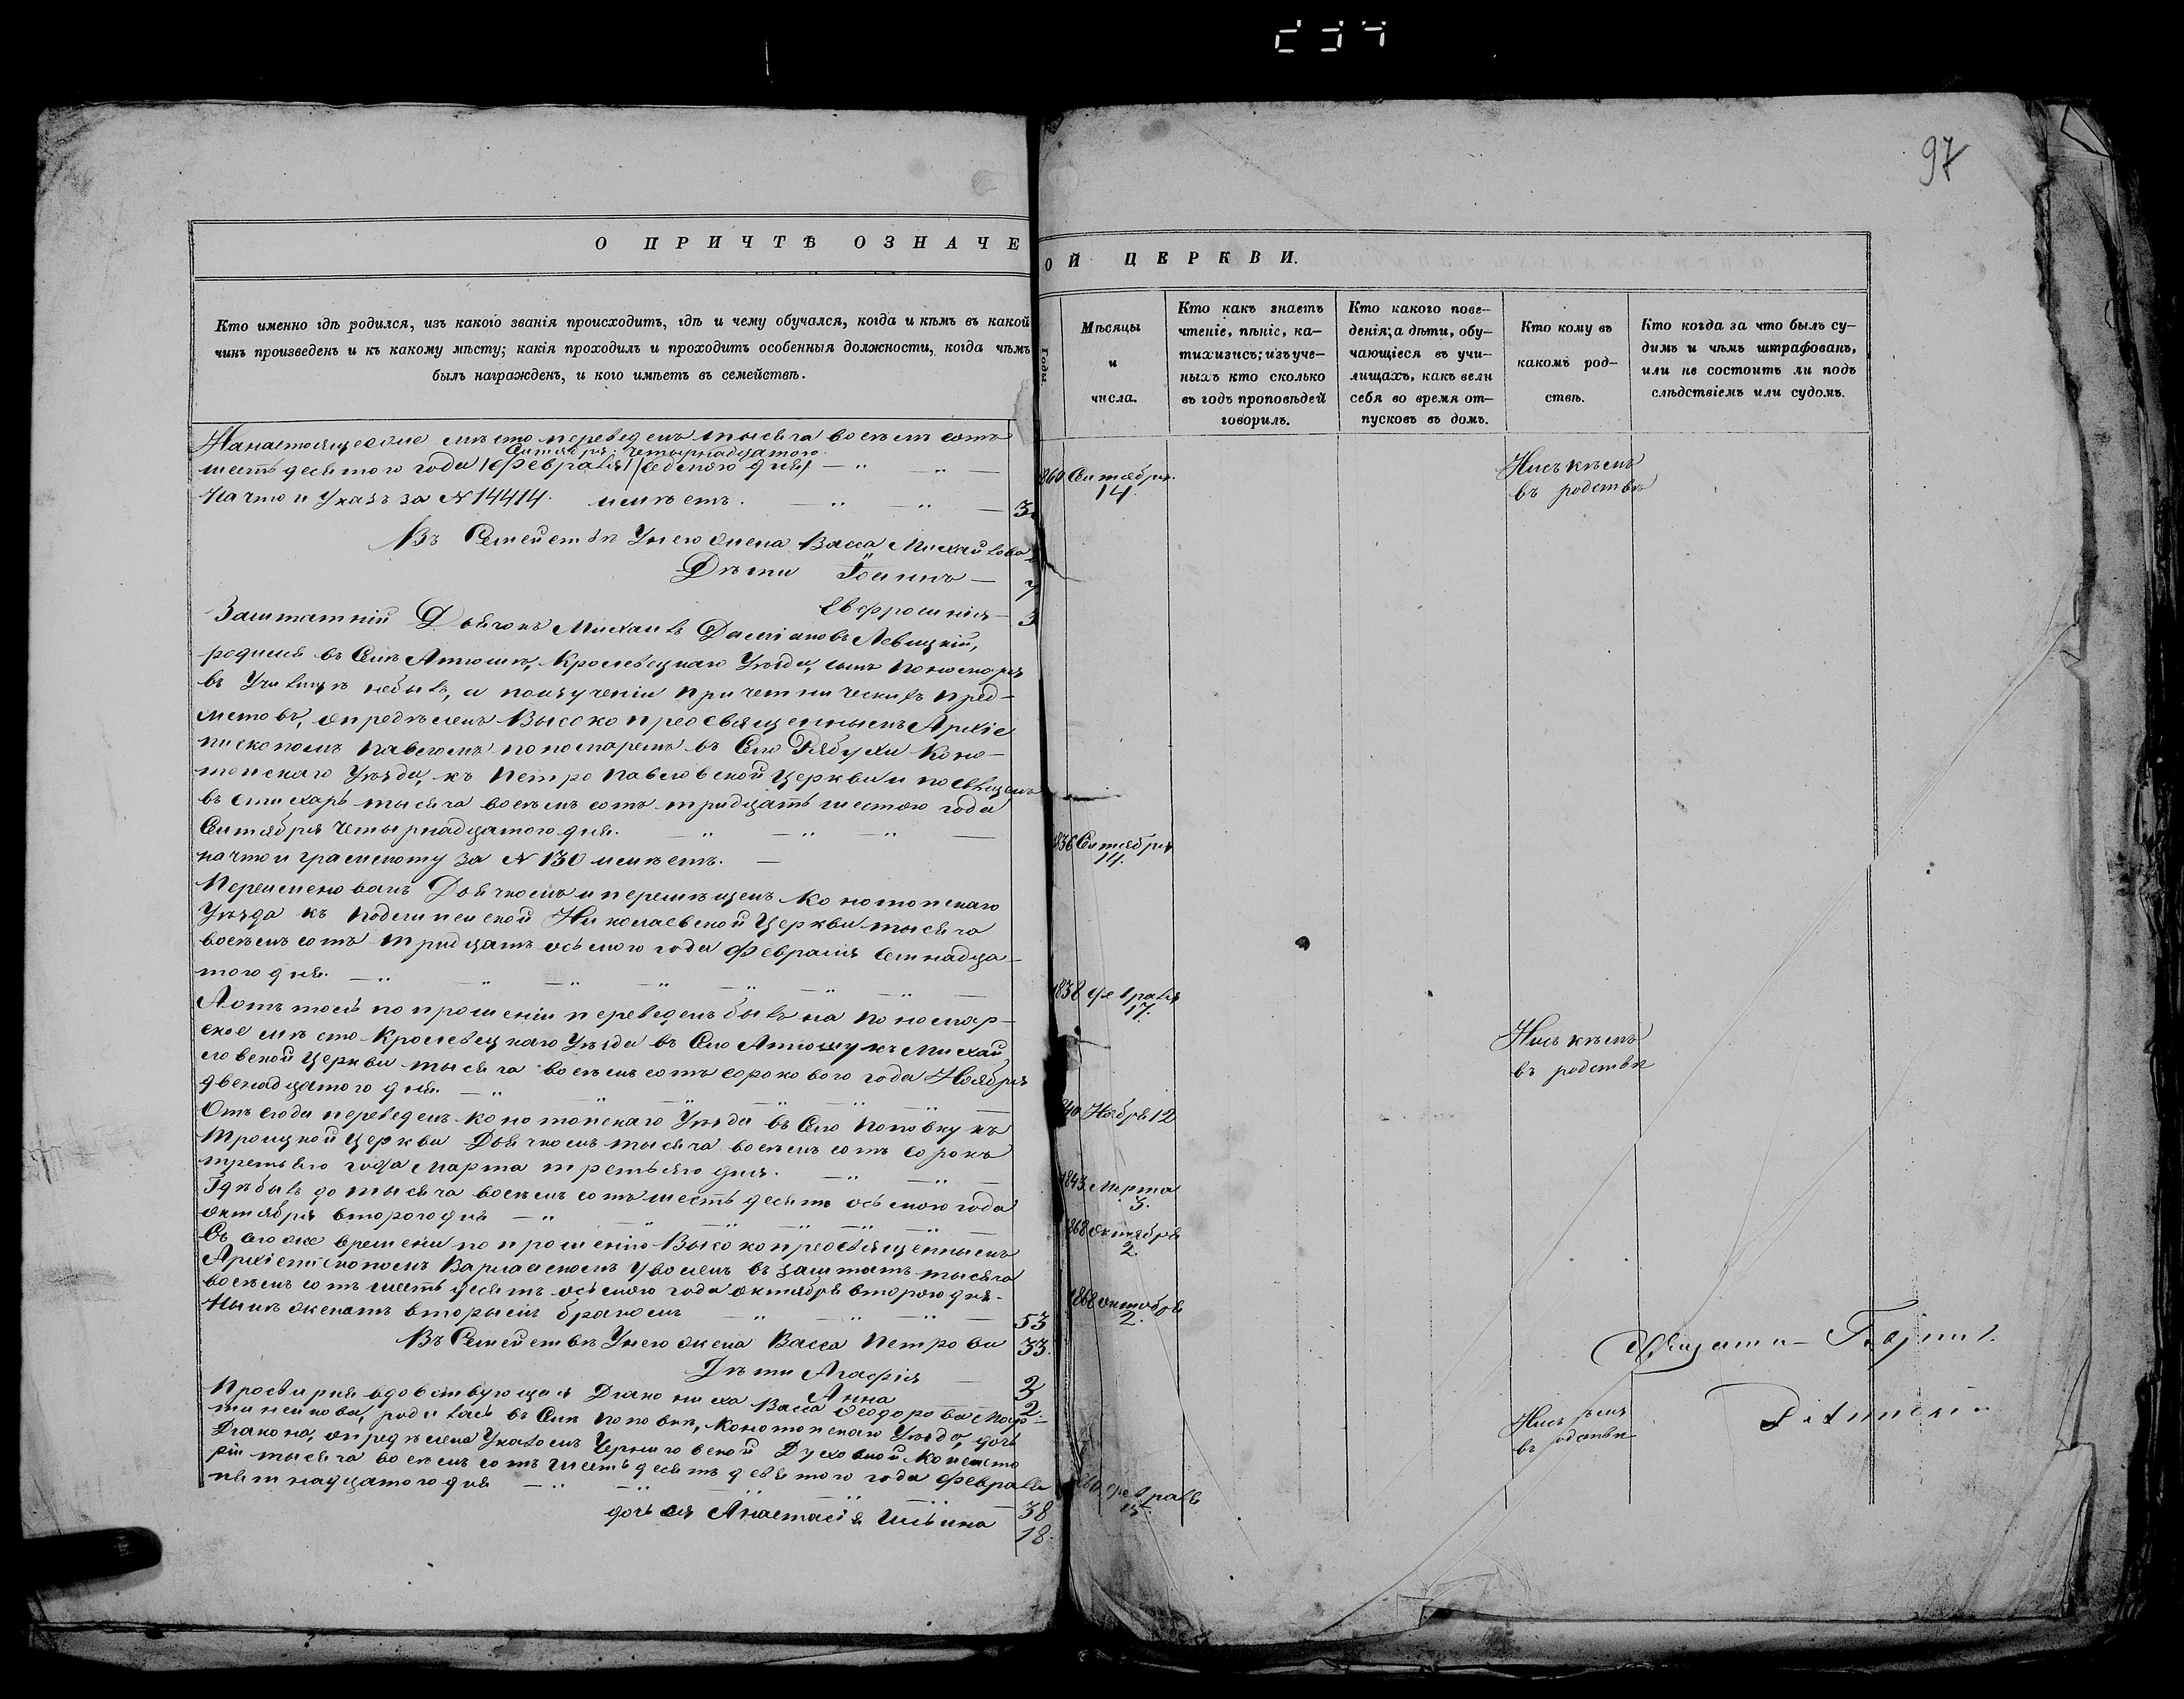 О ПРИЧТѢ ОЗНАЧЕ
Кто именно гдѣ родился, изъ какого званія происходитъ, гдѣ и чему обучался, когда и кѣмъ въ какой
чинъ произведенъ и къ какому мѣсту; какія проходилъ и проходитъ особенныя должности, когда чѣмъ
былъ награжденъ, и кого имѣетъ въ семействѣ.
На настоящее мѣсто переведенъ тысяча восемь сотъ
Сентября четырнадцатого
шестьдесятого года (февраля) (седмого дня)
На что и Указъ за N 14414. имѣетъ.
Въ Семействѣ У него жена Васса Михайлова
Дѣти Іоаннъ — 7
Евфросинія — 3
Заштатній Дьячокъ Михаилъ Даміановъ Левицкій,
родился въ Селѣ Кролевецкаго Уѣзда, сынъ пономаря
въ Училищѣ небылъ, а по изученіи причетническихъ пред-
метовъ, опредѣленъ Высокопреосвященнымъ Архіе
пископомъ Павломъ пономаремъ въ Село Рябухи Коно-
топскаго Уѣзда, къ Петропавловской Церкви и посвященъ
въ стихарь тысяча восемь сотъ тридцать шестого года
Сентября четырнадцатого дня.
на что и грамоту за N 130 имѣетъ.
Переименованъ Дьячкомъ и перемѣщенъ Конотопскаго
Уѣзда къ Николаевской Церкви тысяча
восемь сотъ тридцать осьмого года Февраля семнадца-
того дня.
А отъ толь по прошенію переведенъ былъ на пономар-
ское мѣсто Кролевецкаго Уѣзда въ Село къ Михай
ловской Церкви тысяча восемь сотъ сорокового года Ноября
двенадцатого дня.
Отъ сюда переведенъ Конотопскаго Уѣзда въ Село Поповку къ
Троицкой Церкви Дьячкомъ тысяча восемь сотъ сорокъ
третьяго года Марта третьяго дня.
Гдѣ былъ до тысяча восемь сотъ шестьдесятъ осьмого года
октября второго дня
Съ сего же времени по прошенію Высокопреосвященнымъ
Архіепископомъ Варлаамомъ уволенъ въ заштатъ тысяча
восемь сотъ шестьдесятъ осьмого года октября второго дня.
Нынѣ женатъ вторымъ бракомъ 53
Въ Семействѣ У него жена Васса Петрова 33.
Дѣти Агафія 3
Анна 2.
Просвирня вдовствующая Діакониха Васса Ѳеодорова Мар-
родилась въ Селѣ Поповкѣ, Конотопскаго Уѣзда, дочь
Діакона, опредѣлена Указомъ Черниговской Духовной Консисто
ріи тысяча восемь сотъ шестьдесятъ девятого года февраля
пятнадцатого дня 38
дочь ея Анастасія 18.
97
ОЙ ЦЕРКВИ.
Годы.
Мѣсяцы
и
числа.
Кто какъ знаетъ
чтеніе, пѣніе, ка-
тихизисъ; изъ уче-
ныхъ кто сколько
въ годъ проповѣдей
говорилъ.
Кто какого пове-
денія; а дѣти, обу-
чающіеся въ учи-
лищахъ, какъ вели
себя во время от-
пусковъ въ домъ.
Кто кому въ
какомъ род-
ствѣ.
Кто когда за что былъ су-
димъ и чѣмъ штрафованъ,
или не состоитъ ли подъ
слѣдствіемъ или судомъ.
860 Сентября
14.
Нисъкѣмъ
въ родствѣ
836 Сентября
14.
1838 февраля
17.
Нисъ кѣмъ
въ родствѣ
840 Ноября 12
1843 Марта
3.
1868 октября
2.
1868 октября
2.
Нисъ кѣмъ
въ родствѣ
февраля
15.